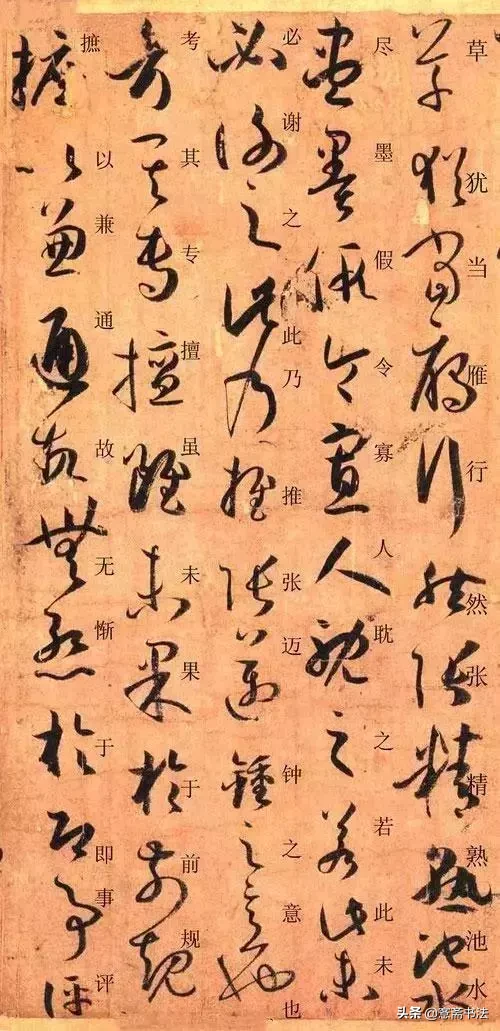 草猶當雁行然張精熟池水
草犹当雁行然张精熟池水
盡墨假令寡人耽之若此未
尽墨假令寡人耽之若此未
必謝之此乃推張邁鍾之意也
必谢之此乃推张迈钟之意也
考其專擅雖未果於前規
考其专擅虽未果于前规
摭以兼通故無慚於即事評
摭以兼通故无惭于即事评
头条 @薏斋书法